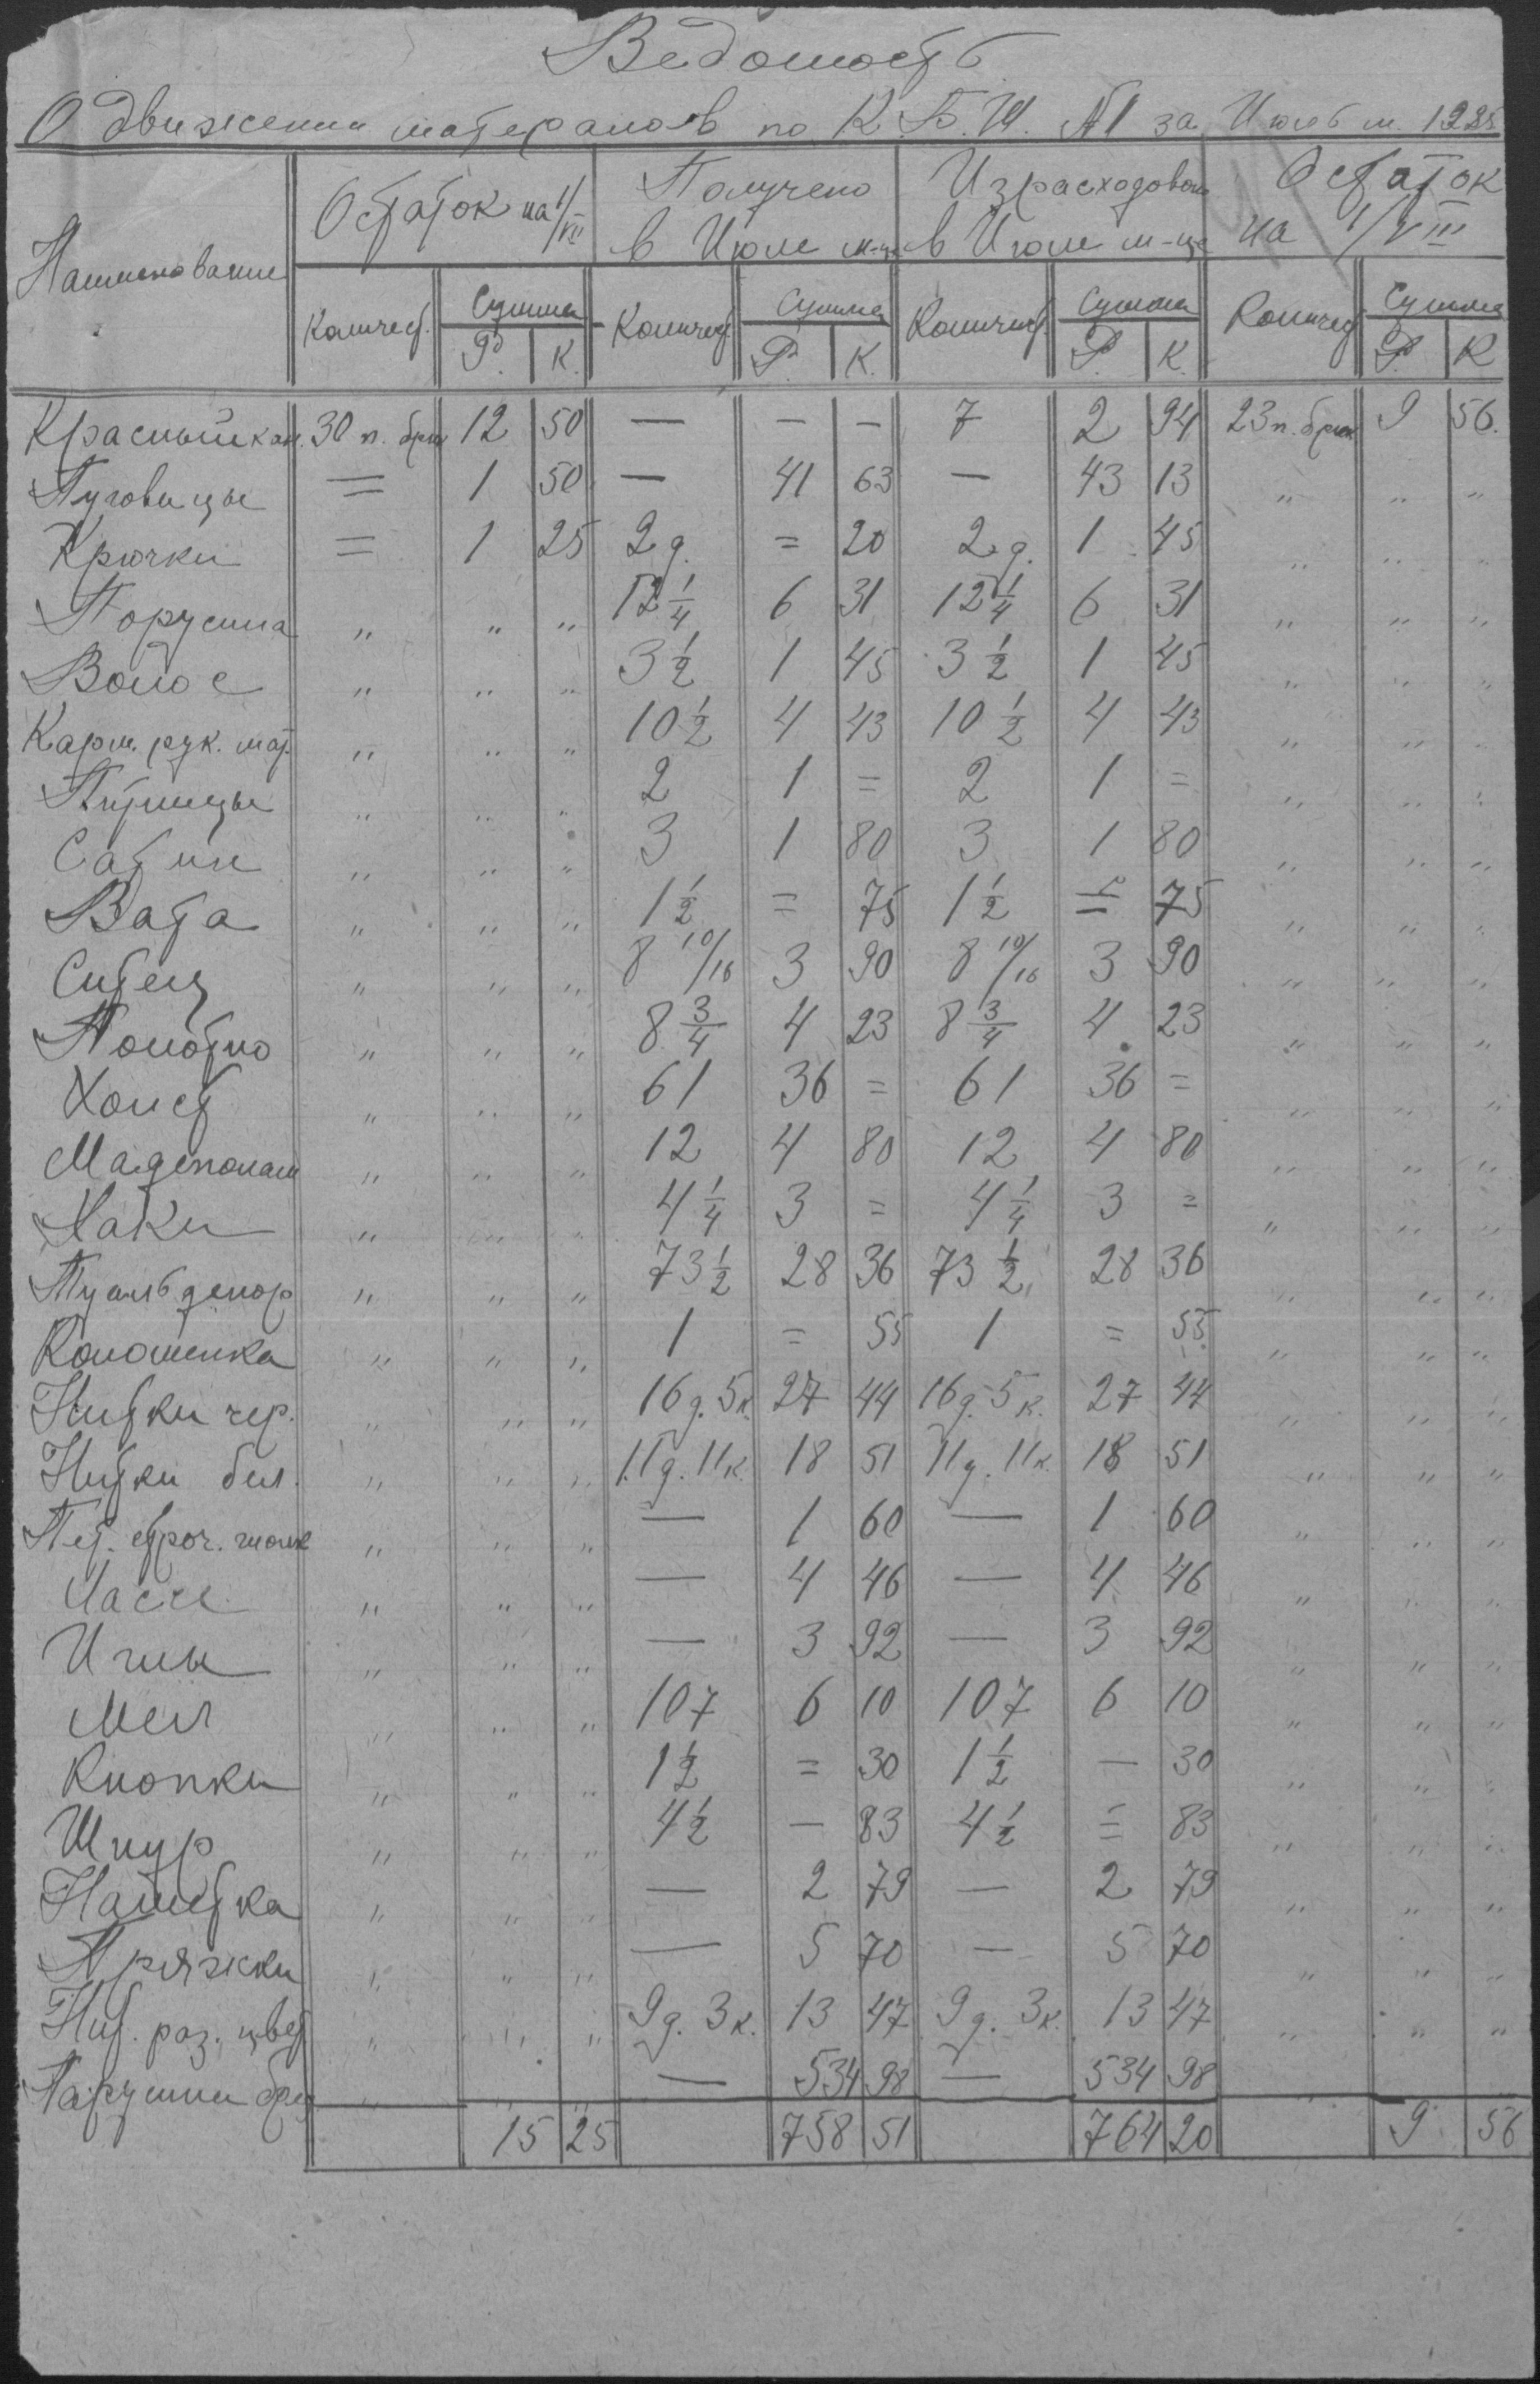 Ведомость
О движении материалов по К.Б.Ш. №1 за Июль м. 1925
Наименование Остаток на 1/VII Получено в Июле м-це Израсходован в Июле м-це Остаток на 1/VIII
Количест. Сумма Количест. Сумма Количест. Сумма Количест Сумма
Р. К. Р. К. Р. К. Р. К
Красный кан. 30 п. брюк 12 50 — — — 7 2 94 23 п. брюк 9 56.
Пуговицы = 1 50 — 41 63 — 43 13 " " "
Крючки = 1 25 2 д. = 20 2 д. 1 45 " " "
Порусина " " " 12 1/4 6 31 12 1/4 6 31 " " "
Волос " " " 3 1/2 1 45 3 1/2 1 45 " " "
Карм. рук. мат. " " " 10 1/2 4 43 10 1/2 4 43 " " "
" " " 2 1 = 2 1 = " " "
Сатин " " " 3 1 80 3 1 80 " " "
Вата " " " 1 1/2 = 75 1 1/2 = 75 " " "
Ситец " " " 8 10/16 3 90 8 10/16 3 90 " " "
Полотно " " " 8 3/4 4 23 8 3/4 4 23 " " "
Холст " " " 61 36 = 61 36 = " " "
Мадеполам " " " 12 4 80 12 4 80 " " "
Хаки " " " 4 1/4 3 = 4 1/4 3 = " " "
Туальденор " " " 73 1/2 28 36 73 1/2 28 36 " " "
Коломенка " " " 1 = 55 1 = 55 " " "
Нитки чер. " " " 16 д. 5 к. 27 44 16 д. 5 к. 27 44 " " "
Нитки бел. " " " 11 д. 11 к. 18 51 11 д. 11 к. 18 51 " " "
Пет. строч. шолк " " " — 1 60 — 1 60 " " "
" " " — 4 46 — 4 46 " " "
Иглы " " " — 3 92 — 3 92 " " "
Мел " " " 107 6 10 107 6 10 " " "
Кнопки " " " 1 1/2 = 30 1 1/2 — 30 " " "
Шнур " " " 4 1/2 — 83 4 1/2 = 83 " " "
Нашивка " " " — 2 79 — 2 79 " " "
Пряжки " " " — 5 70 — 5 70 " " "
Нит. раз. цвет " " " 9 д. 3 к. 13 47 9 д. 3 к. 13 47 " " "
Парусин " " " — 534 98 — 534 98 " " "
15 25 758 51 764 20 9 56